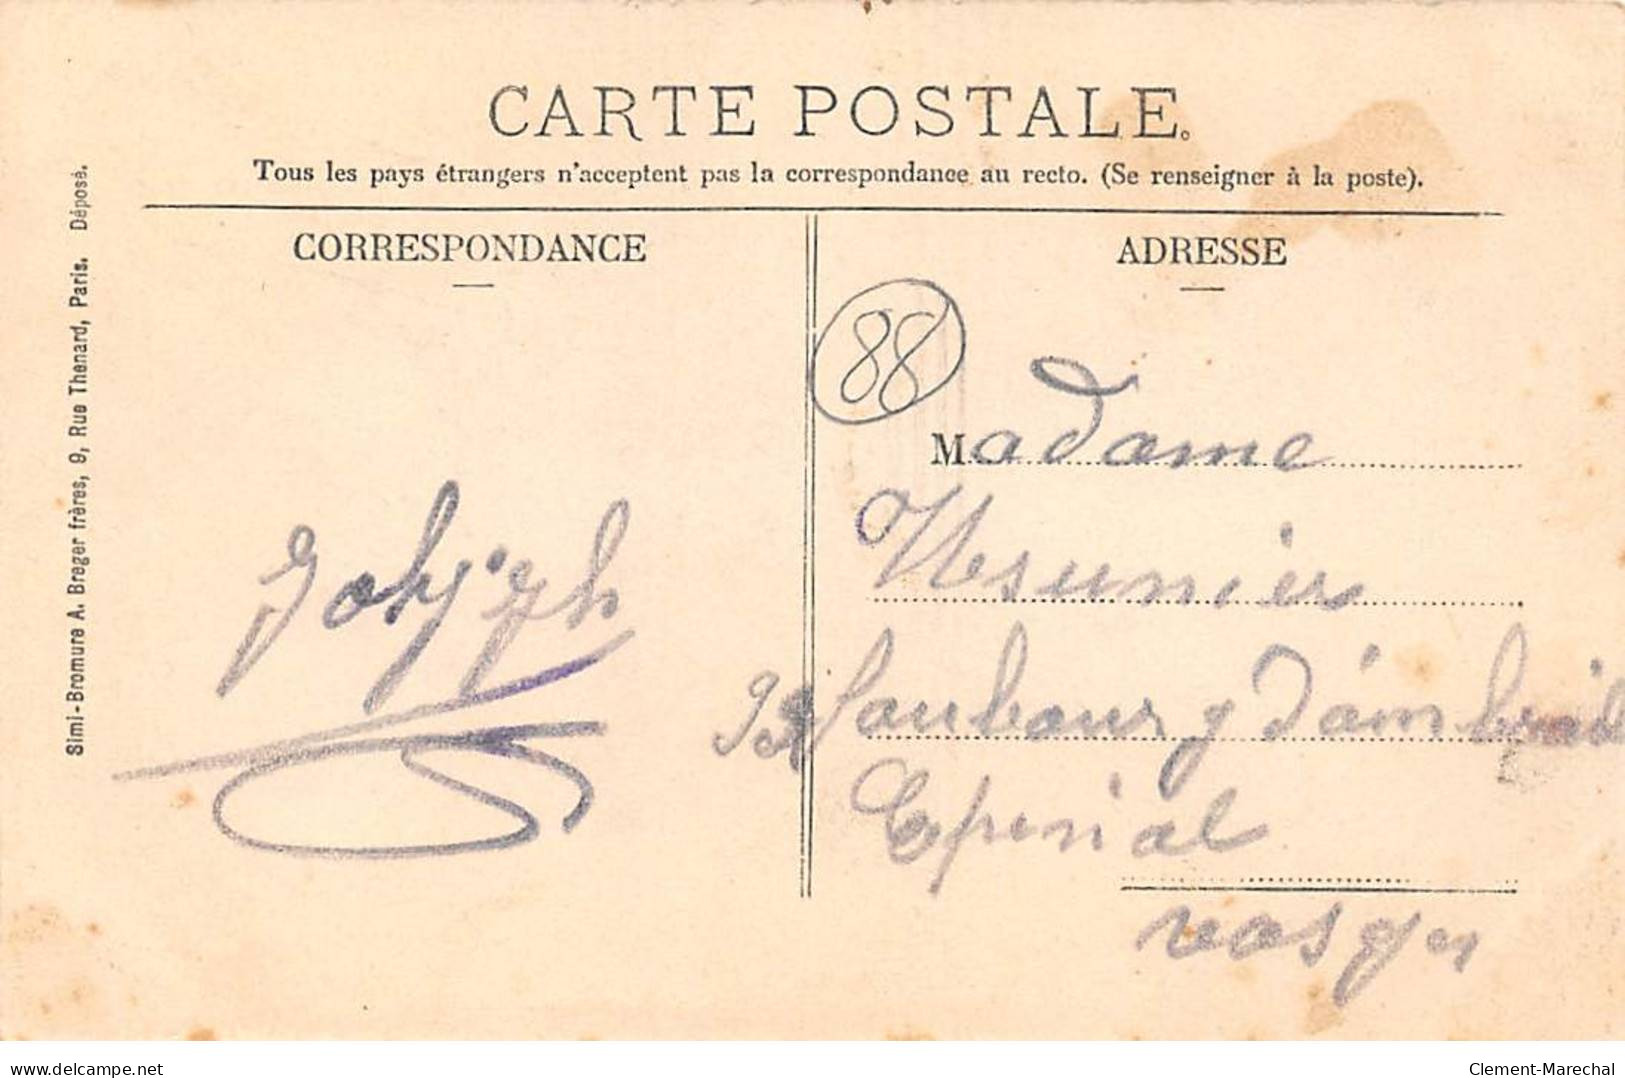 CARTE POSTALE
Tous les pays étrangers n'acceptent pas la correspondance au recto. (Se renseigner à la poste).
CORRESPONDANCE
ADRESSE
Simi-Bromure A. Breger frères, 9, Rue Thenard, Paris. Déposé.
88
Madame
Meunier
faubourg d'ambrail
Epinal
vosges
Joseph
delcampe.net
Clement-Marechal